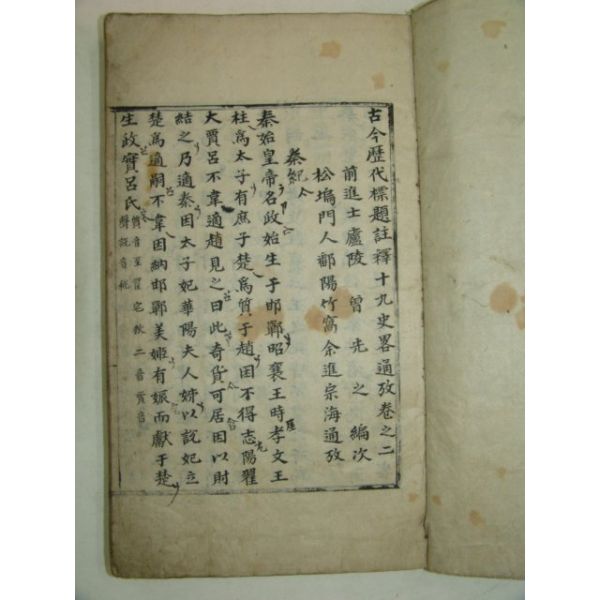 古今歷代標題註釋十九史畧通攷卷之二
前進士廬陵 曾先之 編次
松塢門人鄱陽竹窩余進宗海通攷
秦紀
秦始皇帝名政始生于邯鄲昭襄王時孝文王
柱爲太子有庶子楚爲質于趙困不得志陽翟
大賈呂不韋適趙見之曰此奇貨可居因以財
結之乃適秦因太子妃華陽夫人姊以說妃立
楚爲適嗣不韋因納邯鄲美姬有娠而獻于楚
生政實呂氏
質音至翟宅狄二音賈音
聲說音稅